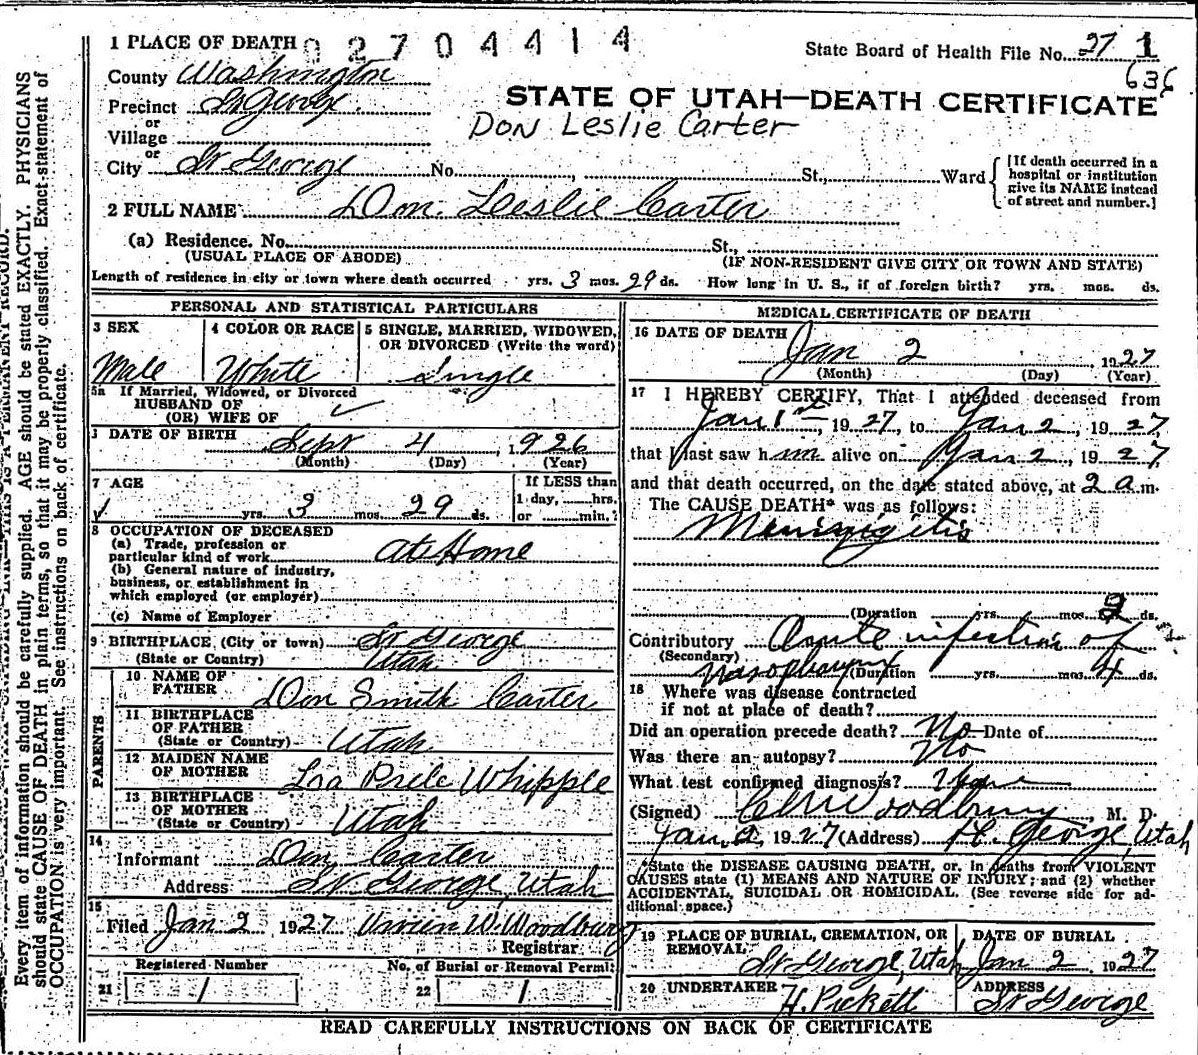 02704414
1 PLACE OF DEATH
State Board of Health File No. 27 1
636
County Washington
Precinct St George
or
Village
or
City St George No. St., Ward
[If death occurred in a hospital or institution give its NAME instead of street and number.]
STATE OF UTAH—DEATH CERTIFICATE
Don Leslie Carter
2 FULL NAME Don Leslie Carter
(a) Residence. No. St.,
(USUAL PLACE OF ABODE) (IF NON-RESIDENT GIVE CITY OR TOWN AND STATE)
Length of residence in city or town where death occurred yrs. 3 mos. 29 ds. How long in U. S., if of foreign birth? yrs. mos. ds.
PERSONAL AND STATISTICAL PARTICULARS
3 SEX
Male
4 COLOR OR RACE
White
5 SINGLE, MARRIED, WIDOWED, OR DIVORCED (Write the word)
Single
5a If Married, Widowed, or Divorced
HUSBAND OF
(OR) WIFE OF
DATE OF BIRTH Sept 4, 1926
(Month) (Day) (Year)
7 AGE
yrs. 3 mos. 29 ds.
If LESS than
1 day, hrs.
or min.?
8 OCCUPATION OF DECEASED
(a) Trade, profession or
particular kind of work At Home
(b) General nature of industry,
business, or establishment in
which employed (or employer)
(c) Name of Employer
9 BIRTHPLACE (City or town) St George
(State or Country) Utah
PARENTS
10 NAME OF FATHER Don Smith Carter
11 BIRTHPLACE OF FATHER
(State or Country) Utah
12 MAIDEN NAME OF MOTHER Prele Whipple
13 BIRTHPLACE OF MOTHER
(State or Country) Utah
14
Informant Don Carter
Address St George, Utah
15
Filed Jan 2 1927 W. Woodbury
Registrar
Registered Number
21
No. of Burial or Removal Permit
22
MEDICAL CERTIFICATE OF DEATH
16 DATE OF DEATH
Jan 2 1927
(Month) (Day) (Year)
17 I HEREBY CERTIFY, That I attended deceased from
Jan 1st, 1927, to Jan 2, 1927,
that I last saw him alive on Jan 2, 1927
and that death occurred, on the date stated above, at 2 a m.
The CAUSE DEATH* was as follows:
Meningitis
(Duration yrs. mos. 2 ds.
Contributory Acute infection of
(Secondary) Nasopharynx (Duration yrs. mos. 4 ds.
18 Where was disease contracted
if not at place of death?
Did an operation precede death? No Date of
Was there an autopsy? No
What test confirmed diagnosis?
(Signed) Woodbury, M. D.
Jan 2, 1927 (Address) St. George, Utah
*State the DISEASE CAUSING DEATH, or, in deaths from VIOLENT
CAUSES state (1) MEANS AND NATURE OF INJURY; and (2) whether
ACCIDENTAL, SUICIDAL OR HOMICIDAL. (See reverse side for ad-
ditional space.)
19 PLACE OF BURIAL, CREMATION, OR REMOVAL
St George, Utah
DATE OF BURIAL
Jan 2 1927
20 UNDERTAKER
H. Pickett
ADDRESS
St George
READ CAREFULLY INSTRUCTIONS ON BACK OF CERTIFICATE
Every item of information should be carefully supplied. AGE should be stated EXACTLY. PHYSICIANS
should state CAUSE OF DEATH in plain terms, so that it may be properly classified. Exact statement of
OCCUPATION is very important. See instructions on back of certificate.